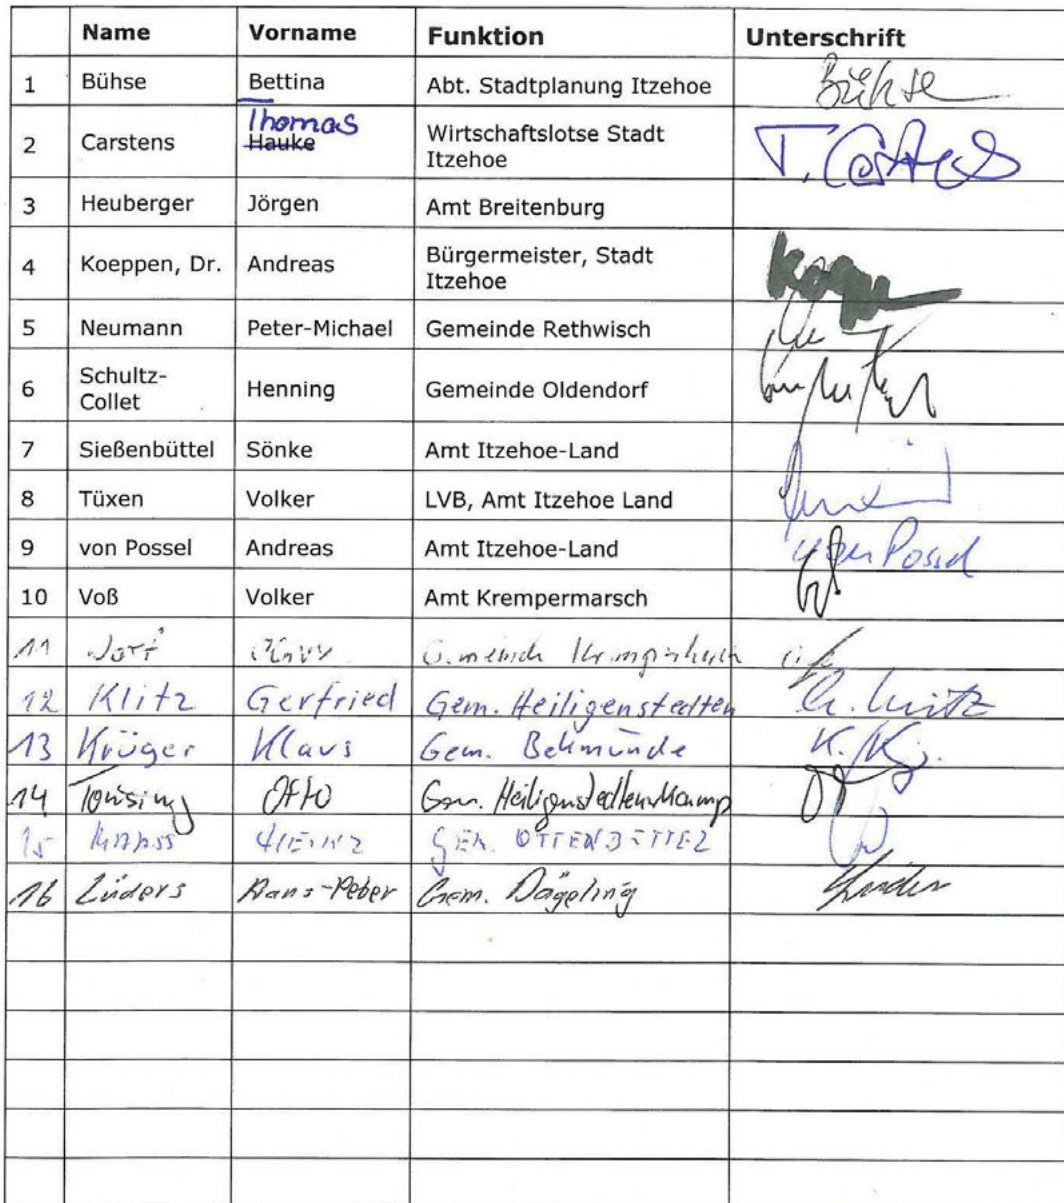 Name Vorname Funktion Unterschrift
1 Bühse Bettina Abt. Stadtplanung Itzehoe Bühse
Thomas
2 Carstens Hauke Wirtschaftslotse Stadt
Itzehoe T. Carstens
3 Heuberger Jörgen Amt Breitenburg
4 Koeppen, Dr. Andreas Bürgermeister, Stadt
Itzehoe
5 Neumann Peter-Michael Gemeinde Rethwisch
6 Schultz-
Collet Henning Gemeinde Oldendorf
7 Sießenbüttel Sönke Amt Itzehoe-Land
8 Tüxen Volker LVB, Amt Itzehoe Land
9 von Possel Andreas Amt Itzehoe-Land von Possel
10 Voß Volker Amt Krempermarsch
11
12 Klitz Gerfried Gem. Heiligenstedten G. Klitz
13 Krüger Klaus Gem. Bekmünde
14 Otto Gem. Heiligenstedtenkamp
15 Heinz Gem. OTTENBÜTTEL
16 Lüders Hans-Peter Gem. Dägeling Lüders